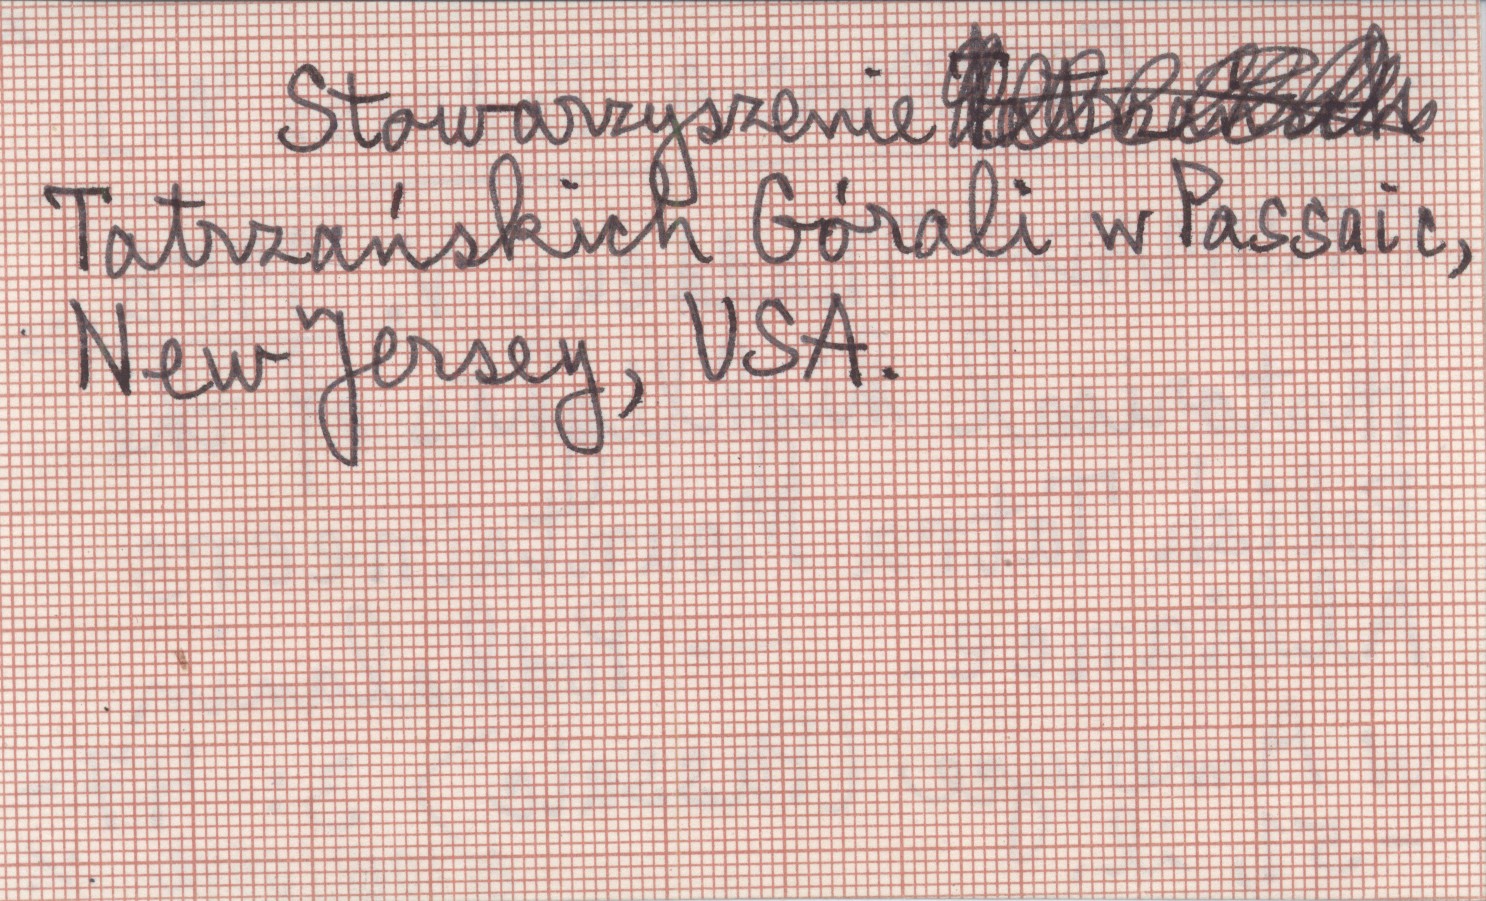 Stowarzyszenie
Tatrzańskich Górali w Passaic,
New Jersey, USA.